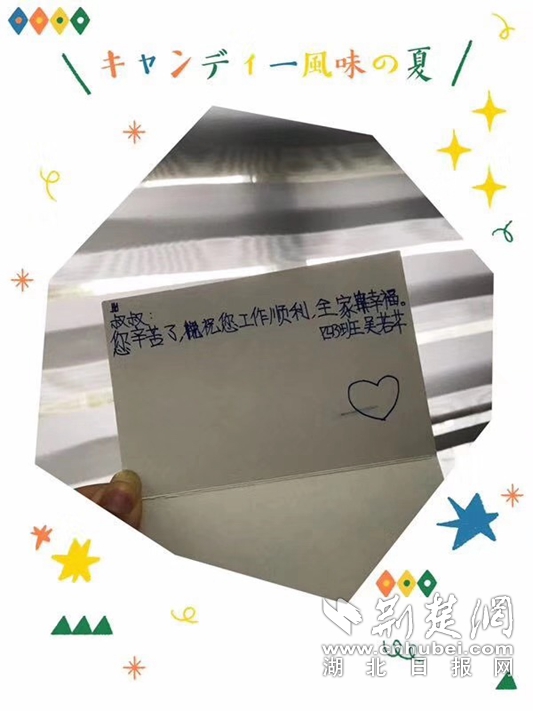 キャンディー風味の夏
叔叔：
您辛苦了,祝您工作顺利,全家幸福。
四3班吴若芊
荆楚網
www.cnhubei.com
湖北日报网